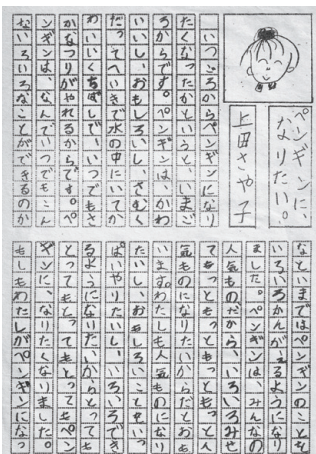 ペンギンに
なりたい。
上田さや子
いつごろからペンギンになり
たくなったかというと、いまご
ろからです。ペンギンは、かわ
いいし、おもしろいし、さむく
だってへいきで水の中にいてか
わいいくちばしで、いつでもさ
かなつりがやれるからです。ペ
ンギンは、なんでいつでもこん
ないろいろなことができるのか
なといまではペンギンのことを
いろいろかんがえるようになり
ました。ペンギンは、みんなの
人気ものだから、いろいろみせ
てもっともっともっともっと人
気ものになりたいからだとおも
います。わたしも人気ものになり
たいし、おもしろいこともいっ
ぱいやりたいし、いろいろでき
るようになりたいからとっても
とってもとってもとってもペン
ギンに、なりたくなりました。
もしもわたしがペンギンになっ